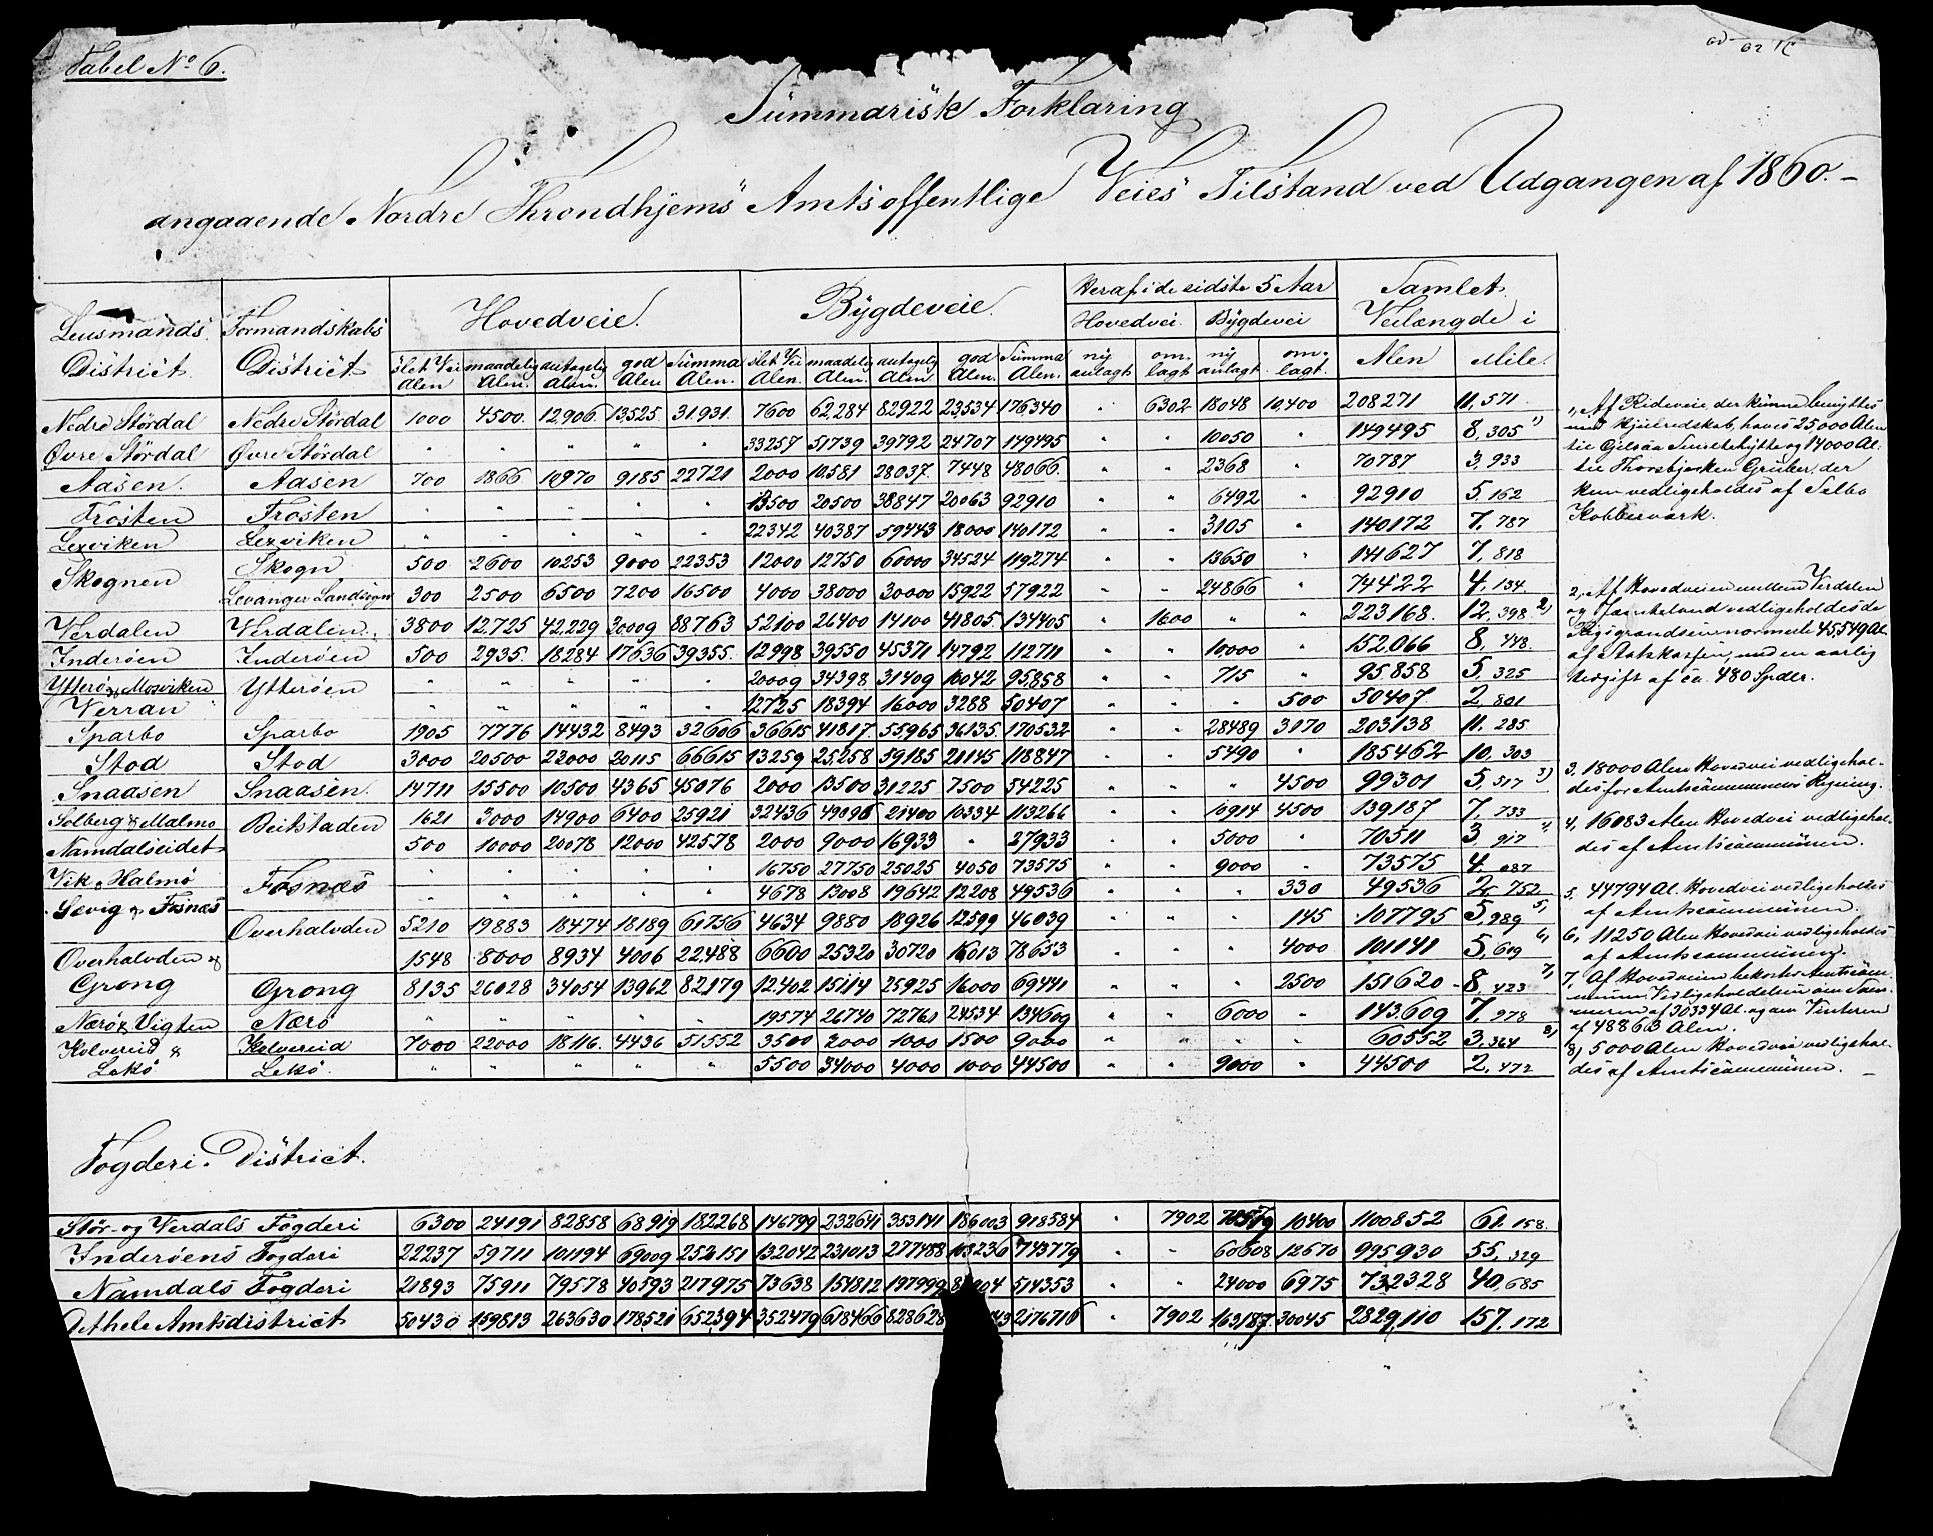 Tabel No 6.
Summarisk Forklaring
angaaende Nordre Throndhjems Amts offentlige Veies Tilstand ved Udgangen af 1860.-
Lensmands District. | Formandskabs District | Hovedveie. | Bygdeveie. | Heraf i de sidste 5 Aar | Samlet Veilængde i
Hovedvei. | Bygdevei
slet Vei Alen | maadelig Alen. | antagelig Alen. | god Alen | Summa Alen. | slet Vei Alen. | maadelig Alen. | antagelig Alen | god Alen. | Summa Alen. | ny anlagt | om- lagt | ny anlagt | om- lagt. | Alen | Mile.
Nedre Stördal | Nedre Stördal | 1000 | 4500. | 12,906. | 13,525. | 31,931. | 7600 | 62,284 | 82922 | 23,534 | 176340 | " | 6302 | 18048 | 10,400 | 208271 | 11, 571
Øvre Stördal | Øvre Stördal | " | " | " | " | " | 33257 | 51739 | 39792 | 24707 | 149495 | " | " | 10050 | " | 149495 | 8, 305 1)
Aasen. | Aasen | 700 | 1866 | 10970 | 9185 | 22721 | 2000 | 10581 | 28037. | 7448 | 48066. | " | " | 2368 | " | 70787 | 3, 933
Frosten | Frosten | " | " | " | " | " | 13500 | 20500 | 38847 | 20063 | 92910 | " | " | 6492 | " | 92910 | 5. 162
Lexviken | Lexviken | " | " | " | " | " | 22342 | 40387 | 59443 | 18000 | 140172 | " | " | 3105 | " | 140172 | 7, 787
Skognen | Skogn | 500 | 2600 | 10253 | 9000 | 22353 | 12000 | 12750 | 60000 | 34524 | 119274 | " | " | 13650 | " | 141627 | 7, 818
Levanger Landsogn | 300 | 2500 | 6500 | 7200 | 16500 | 4000 | 38000 | " | 15922 | 57922 | " | " | 24866 | " | 74422 | 4, 134
Verdalen | Verdalen. | 3800 | 12,725 | 42,229 | 30009 | 88763 | 52100 | 26400 | 14100 | 41805 | 134405 | " | 1600 | " | " | 223168. | 12, 398 2)
Inderöen | Inderöen | 500 | 2935. | 18284 | 17636 | 39355. | 12998 | 39550 | 45371 | 14792 | 112711 | " | " | 10000 | " | 152,066 | 8, 448.
Ytterö & Mosviken | Ytteröen | " | " | " | " | " | 20009 | 34398 | 31409 | 10042 | 95,858 | " | " | 715 | " | 95.858 | 5, 325
Verran | " | " | " | " | " | 12725 | 18394 | 16000 | 3288 | 50407 | " | " | " | 500 | 50407. | 2, 801
Sparbo | Sparbo | 1905 | 7776 | 14432 | 8493 | 32606 | 36615 | 41817. | 55,965 | 36135. | 170532 | " | " | 28489 | 3170 | 203138 | 11. 285
Stod | Stod | 3000 | 20500 | 22000 | 20115 | 66615 | 13259 | 25,258 | 59185 | 21145 | 118847 | " | " | 5490 | " | 185462 | 10, 303
Snaasen | Snaasen. | 14711 | 15500 | 10500 | 4365 | 45076 | 2000 | 13500 | 31225 | 7500 | 54225 | " | " | " | 4500 | 99301 | 5, 517 3)
Solberg & Malmo | Beitstaden | 1621 | 3000 | 14900 | 6400 | 25921 | 32436 | 49096 | 21400 | 10334 | 113266 | " | " | 10914 | 4500 | 139187 | 7, 733
Namdalseidet | 500 | 10000 | 20078 | 12000 | 42578 | 2000 | 9000 | 16933 | " | 27933 | " | " | 5000 | " | 70511 | 3 917 4)
Vik & Halmö | Fosnæs | " | " | " | " | " | 16750 | 27750 | 25025 | 4050 | 73575 | " | " | 9000 | " | 73575 | 4, 087
Sævig & Fosnæs | " | " | " | " | " | 4678 | 13008 | 19642 | 12208 | 49536 | " | " | " | 330 | 49536 | 2, 752
Overhalvden | 5210 | 19883 | 18474 | 18189 | 61756 | 4634 | 9880 | 18926 | 12599 | 46039 | " | " | " | 145 | 107795 | 5, 989 5)
Overhalvden & | 1548 | 8000 | 8934 | 4006 | 22,488 | 6600 | 25320 | 30720 | 16013 | 78653 | " | " | " | 4000 | 101141 | 5, 619 6)
Grong | Grong | 8135 | 26028 | 34054 | 13962 | 82179 | 12,402 | 15114 | 25925 | 16000 | 69441 | " | " | " | 2500 | 151620 | 8, 423 7)
Nærö & Vigten | Nærö | " | " | " | " | " | 19574 | 26740 | 72761 | 24534 | 134609 | " | " | 6000 | " | 143.609 | 7, 978
Kolvereid & | Kolvereid | 7000 | 22000 | 18116. | 4436 | 51552 | 3500 | 2000 | 1000 | 1500 | 9000 | " | " | " | " | 60552 | 3, 364 8)
Lekö | Lekö | " | " | " | " | " | 5500 | 34000 | 4000 | 1000 | 44500 | " | " | 9000 | " | 44500 | 2, 472
1, Af Rideveie, der kunne benyttes
med Hjulredskab, haves 25000 Alen
til Gilsaa Smeltehytte og 14000 Al.
til Thorsbjerken Gruber, der
kun vedligeholdes af Selbo
Kobberværk.
2, Af Hovedveien mellem Verdalen
og Jæmteland vedligeholdes de
Rigsgrandsen nærmeste 45,549 Al.
af Statskassen, med en aarlig
Udgift af ca. 480 Spdlr.
3, 18000 Alen Hovedvei vedligehol-
des for Amtscommunens Regning.
4, 16083 Alen Hovedvei vedligehol-
des af Amtscommunen.
5, 44794 Al. Hovedvei vedligeholdes
af Amtscommunen.
6, 11250 Alen Hovedvei vedligeholdes
af Amtscommunen.
7, Af Hovedveien bekoster Amtscom-
munen Vedligeholdelsen om Som-
meren af 30334 Al. og om Vinteren
af 48863 Alen.
8, 5000 Alen Hovedvei vedligehol-
des af Amtscommunen. -
Fogderi. District.
Stör- og Verdals Fogderi | 6300 | 24191 | 82858 | 68919 | 182268 | 146799 | 232641 | 353141 | 186003 | 918584 | " | 7902 | 78579 | 10400 | 1100852 | 61. 158.
Inderöens Fogderi | 22237 | 59711 | 101194 | 69009 | 252151 | 132042 | 231013 | 277488 | 103236 | 743779 | " | " | 60608 | 12670 | 995930 | 55, 329
Namdals Fogderi | 21893 | 75911 | 79578 | 40593 | 217975 | 73638 | 154812 | 197999 | 514353 | " | " | 24000 | 6975 | 732328 | 40,685
Det hele Amtsdistrict | 50430 | 159813 | 263630 | 178521 | 652394 | 352479 | 618466 | 828628 | 2176716 | " | 7902 | 163,187. | 30045 | 2829,110 | 157, 172